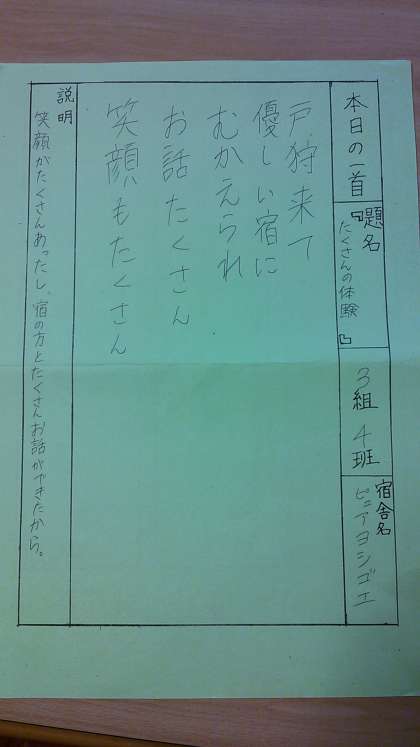 本日の一首
題名
『たくさんの体験』
3組 4班
宿舎名
ピュアヨシゴエ
戸狩来て
優しい宿に
むかえられ
お話たくさん
笑顔もたくさん
説明
笑顔がたくさんあったし、宿の方とたくさんお話ができたから。